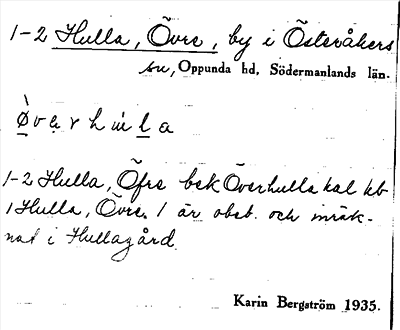 1-2 Hulla, Övre, by i Österåkers
sn, Oppunda hd, Södermanlands län.
øvərhula
1-2 Hulla, Öfre bsk Överhulla kal kb
1 Hulla, Övre. 1 är obeb. och inräk-
nat i Hullagård.
Karin Bergström 1935.